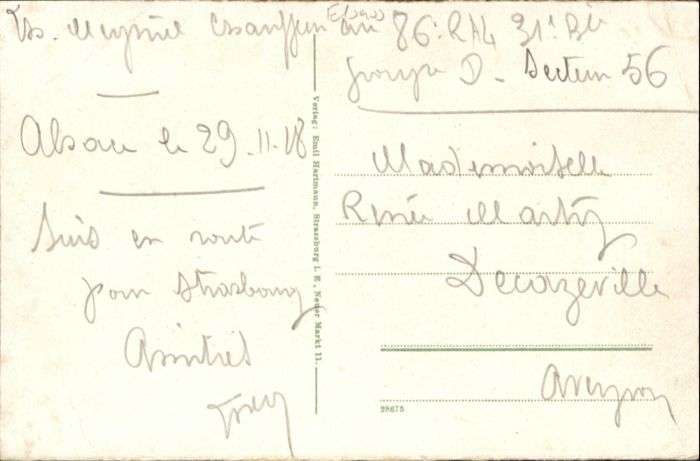 chauffeur au 86e RAL 31e Bie
groupe D. Secteur 56
Alsace le 29.11.18
Suis en route
pour Strasbourg
Amitiés
Verlag: Emil Hartmann, Strassburg i. E., Neuer Markt 11.
Mademoiselle
Renée Marty
Decazeville
Aveyron